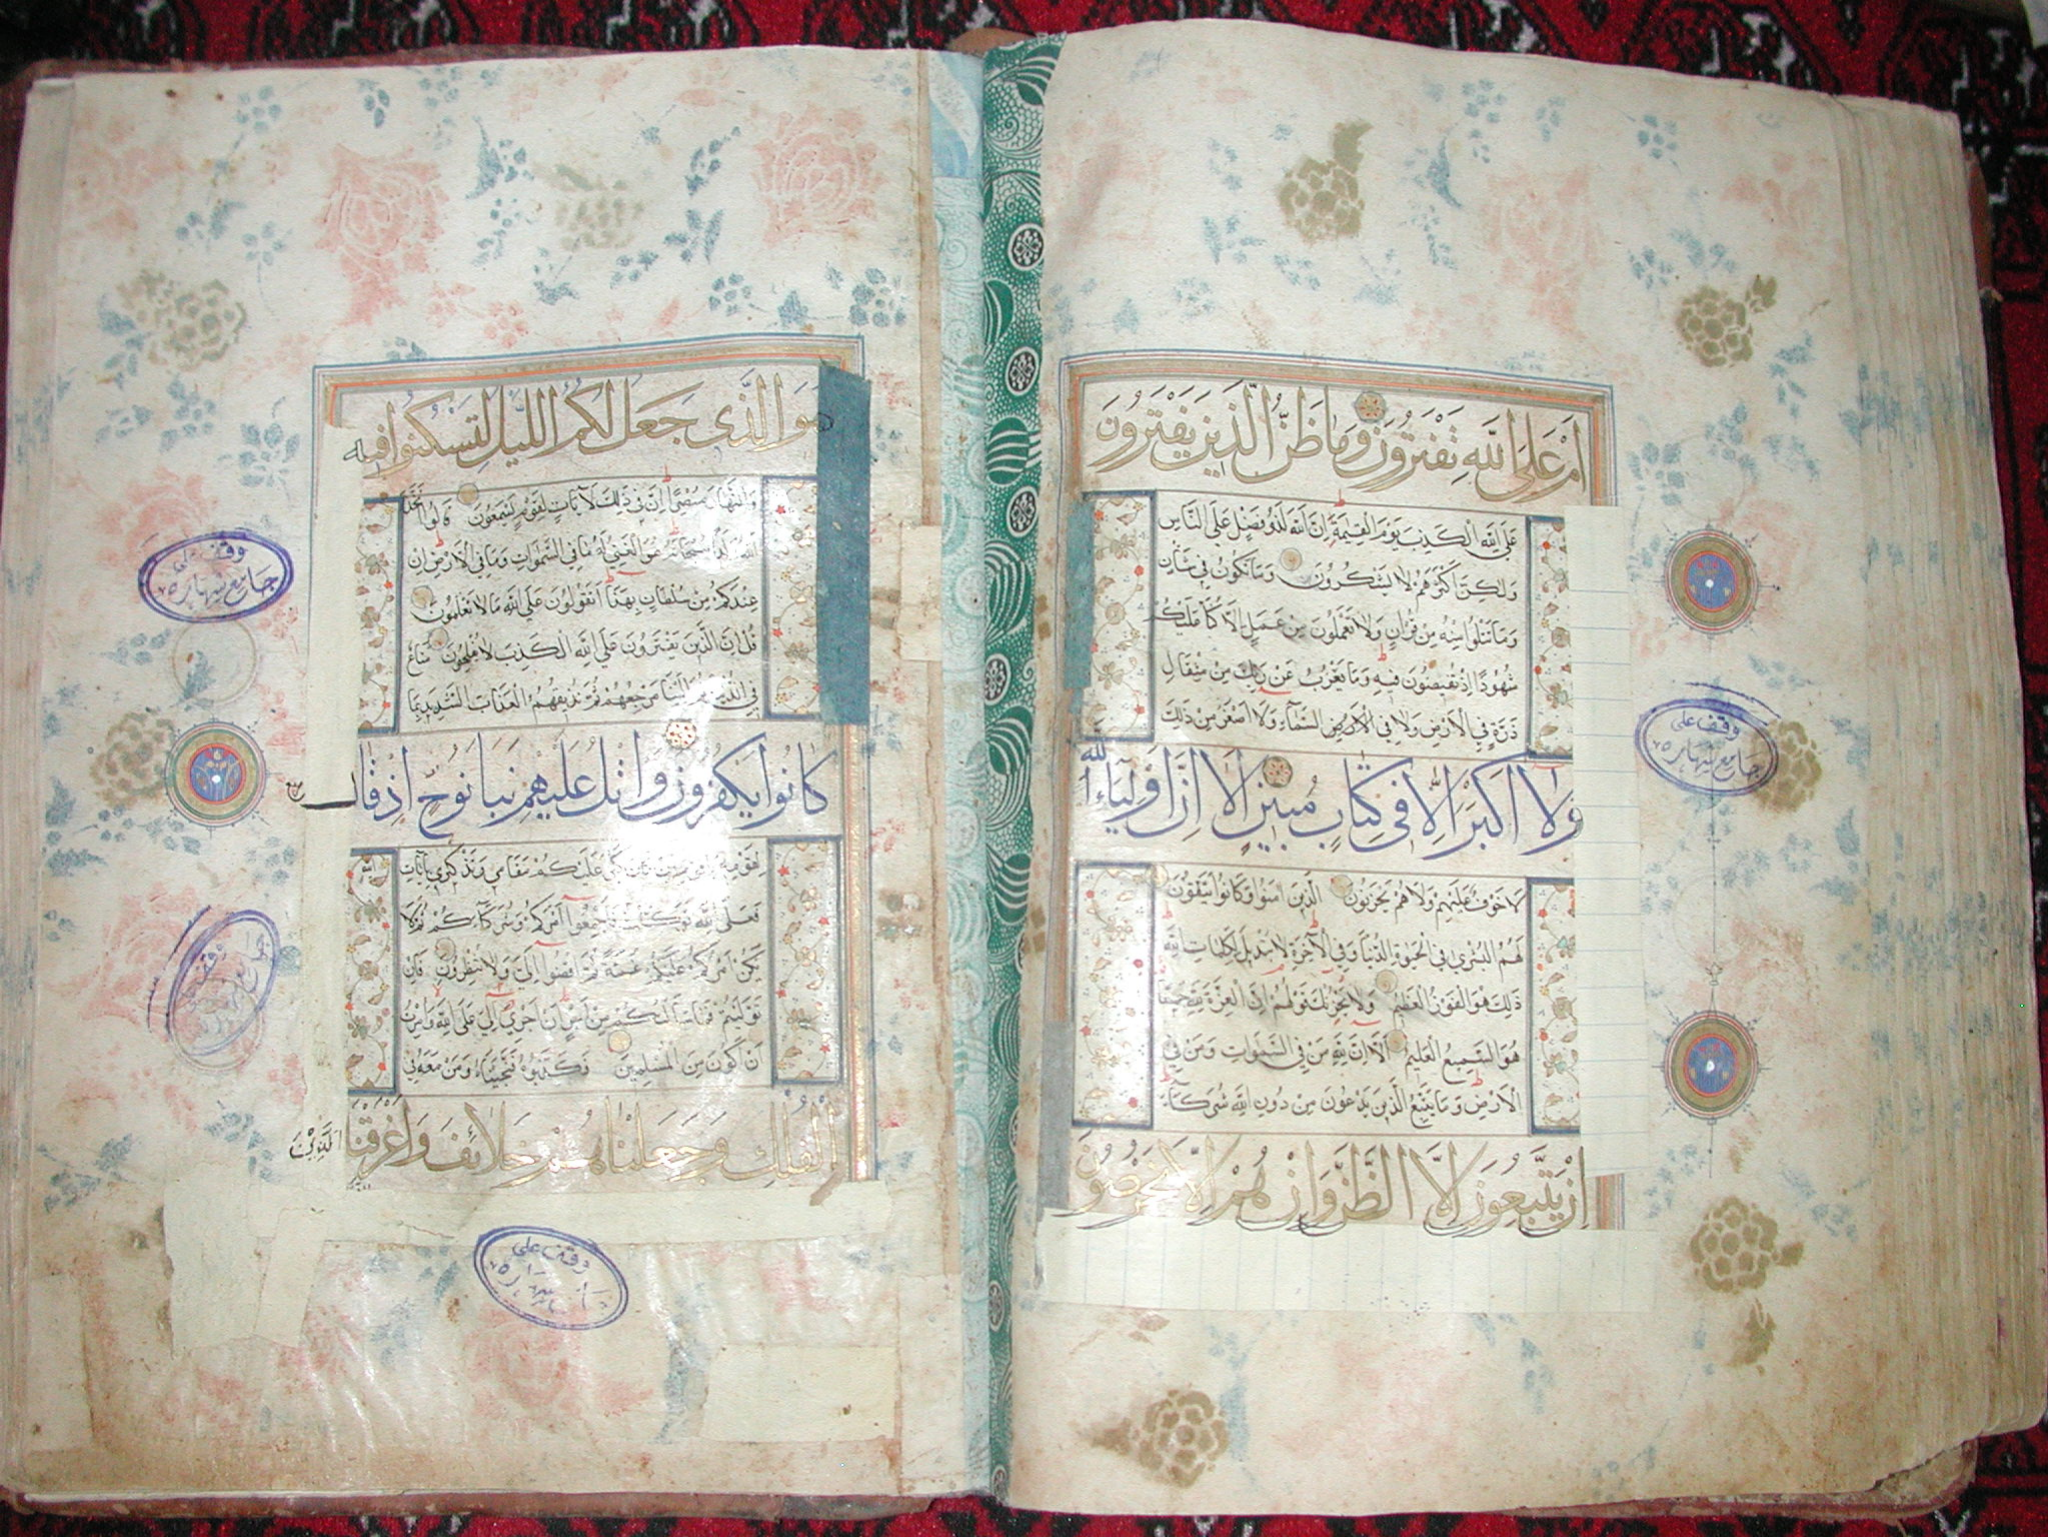 أم على الله تفترون وما ظن الذين يفترون
على الله الكذب يوم القيمة إن الله لذو فضل على الناس
ولكن أكثرهم لا يشكرون وما تكون في شأن
وما تتلوا منه من قرآن ولا تعملون من عمل إلا كنا عليكم
شهودا إذ تفيضون فيه وما يعزب عن ربك من مثقال
ذرة في الأرض ولا في السماء ولا أصغر من ذلك
ولا أكبر إلا في كتاب مبين ألا إن أولياء الله
لا خوف عليهم ولا هم يحزنون الذين آمنوا وكانوا يتقون
لهم البشرى في الحيوة الدنيا وفي الآخرة لا تبديل لكلمات الله
ذلك هو الفوز العظيم ولا يحزنك قولهم إن العزة لله جميعا
هو السميع العليم ألا إن لله من في السموات ومن في
الأرض وما يتبع الذين يدعون من دون الله شركاء
إن يتبعون إلا الظن وإن هم إلا يخرصون
وقف على
جامع شهار
هو الذي جعل لكم الليل لتسكنوا فيه
والنهار مبصرا إن في ذلك لآيات لقوم يسمعون قالوا اتخذ
الله ولدا سبحانه هو الغني له ما في السموات وما في الأرض إن
عندكم من سلطان بهذا أتقولون على الله ما لا تعلمون
قل إن الذين يفترون على الله الكذب لا يفلحون متاع
في الدنيا ثم إلينا مرجعهم ثم نذيقهم العذاب الشديد بما
كانوا يكفرون واتل عليهم نبأ نوح إذ قال
لقومه يا قوم إن كان كبر عليكم مقامي وتذكيري بآيات
فعلى الله توكلت فأجمعوا أمركم وشركاءكم ثم لا
يكن أمركم عليكم غمة ثم اقضوا إلي ولا تنظرون فإن
توليتم فما سألتكم من أجر إن أجري إلا على الله وأمرت
أن أكون من المسلمين فكذبوه فنجيناه ومن معه في
الفلك وجعلناهم خلائف وأغرقنا الذين
وقف على
جامع شهار
وقف على
وقف على